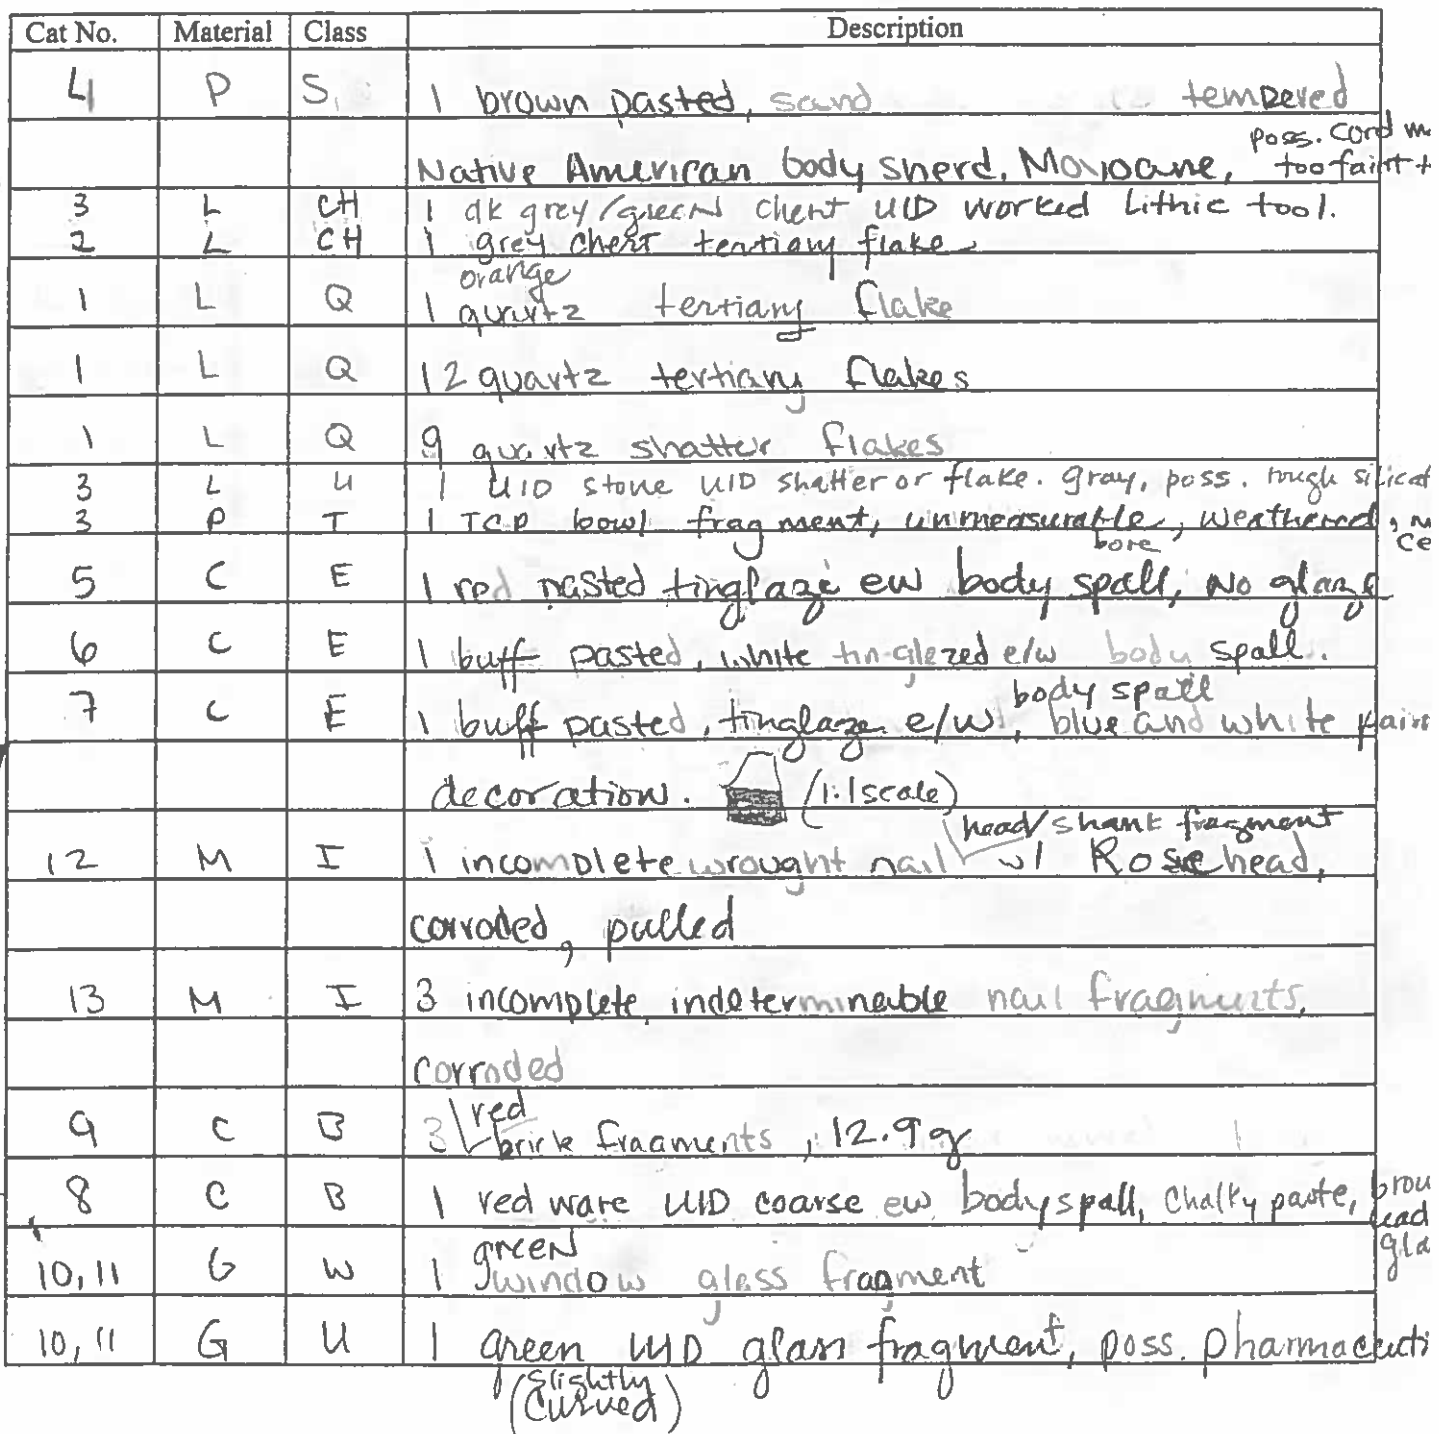 Cat No. Material Class Description
4 P S 1 brown pasted, sand tempered
poss. Cord
Native American body sherd. Moyoane, too faint
3 L CH 1 dk grey/green chert UID worked Lithic tool.
2 L CH 1 grey chert tertiary flake
orange
1 L Q 1 quartz tertiary flake
1 L Q 12 quartz tertiary flakes
1 L Q 9 quartz shatter flakes
3 L U 1 UID stone UID shatter or flake. gray, poss. rough
3 P T 1 TCP bowl fragment, unmeasurable, weathered,
bore
5 C E 1 red pasted tinglaze ew body spall, No glaze
6 C E 1 buff pasted, white tin-glazed e/w body spall.
body spall
7 C E 1 buff pasted, tinglaze e/w, blue and white
decoration. (1:1 scale)
head/shank fragment
12 M I 1 incomplete wrought nail w/ Rose head,
corroded, pulled
13 M I 3 incomplete, indeterminable nail fragments,
corroded
red
9 C B 3 brick fragments, 12.9g
8 C B 1 red ware UID coarse ew body spall, chalky paste,
green
10, 11 G W 1 window glass fragment
10, 11 G U 1 green UID glass fragment, poss.
(slightly
curved)